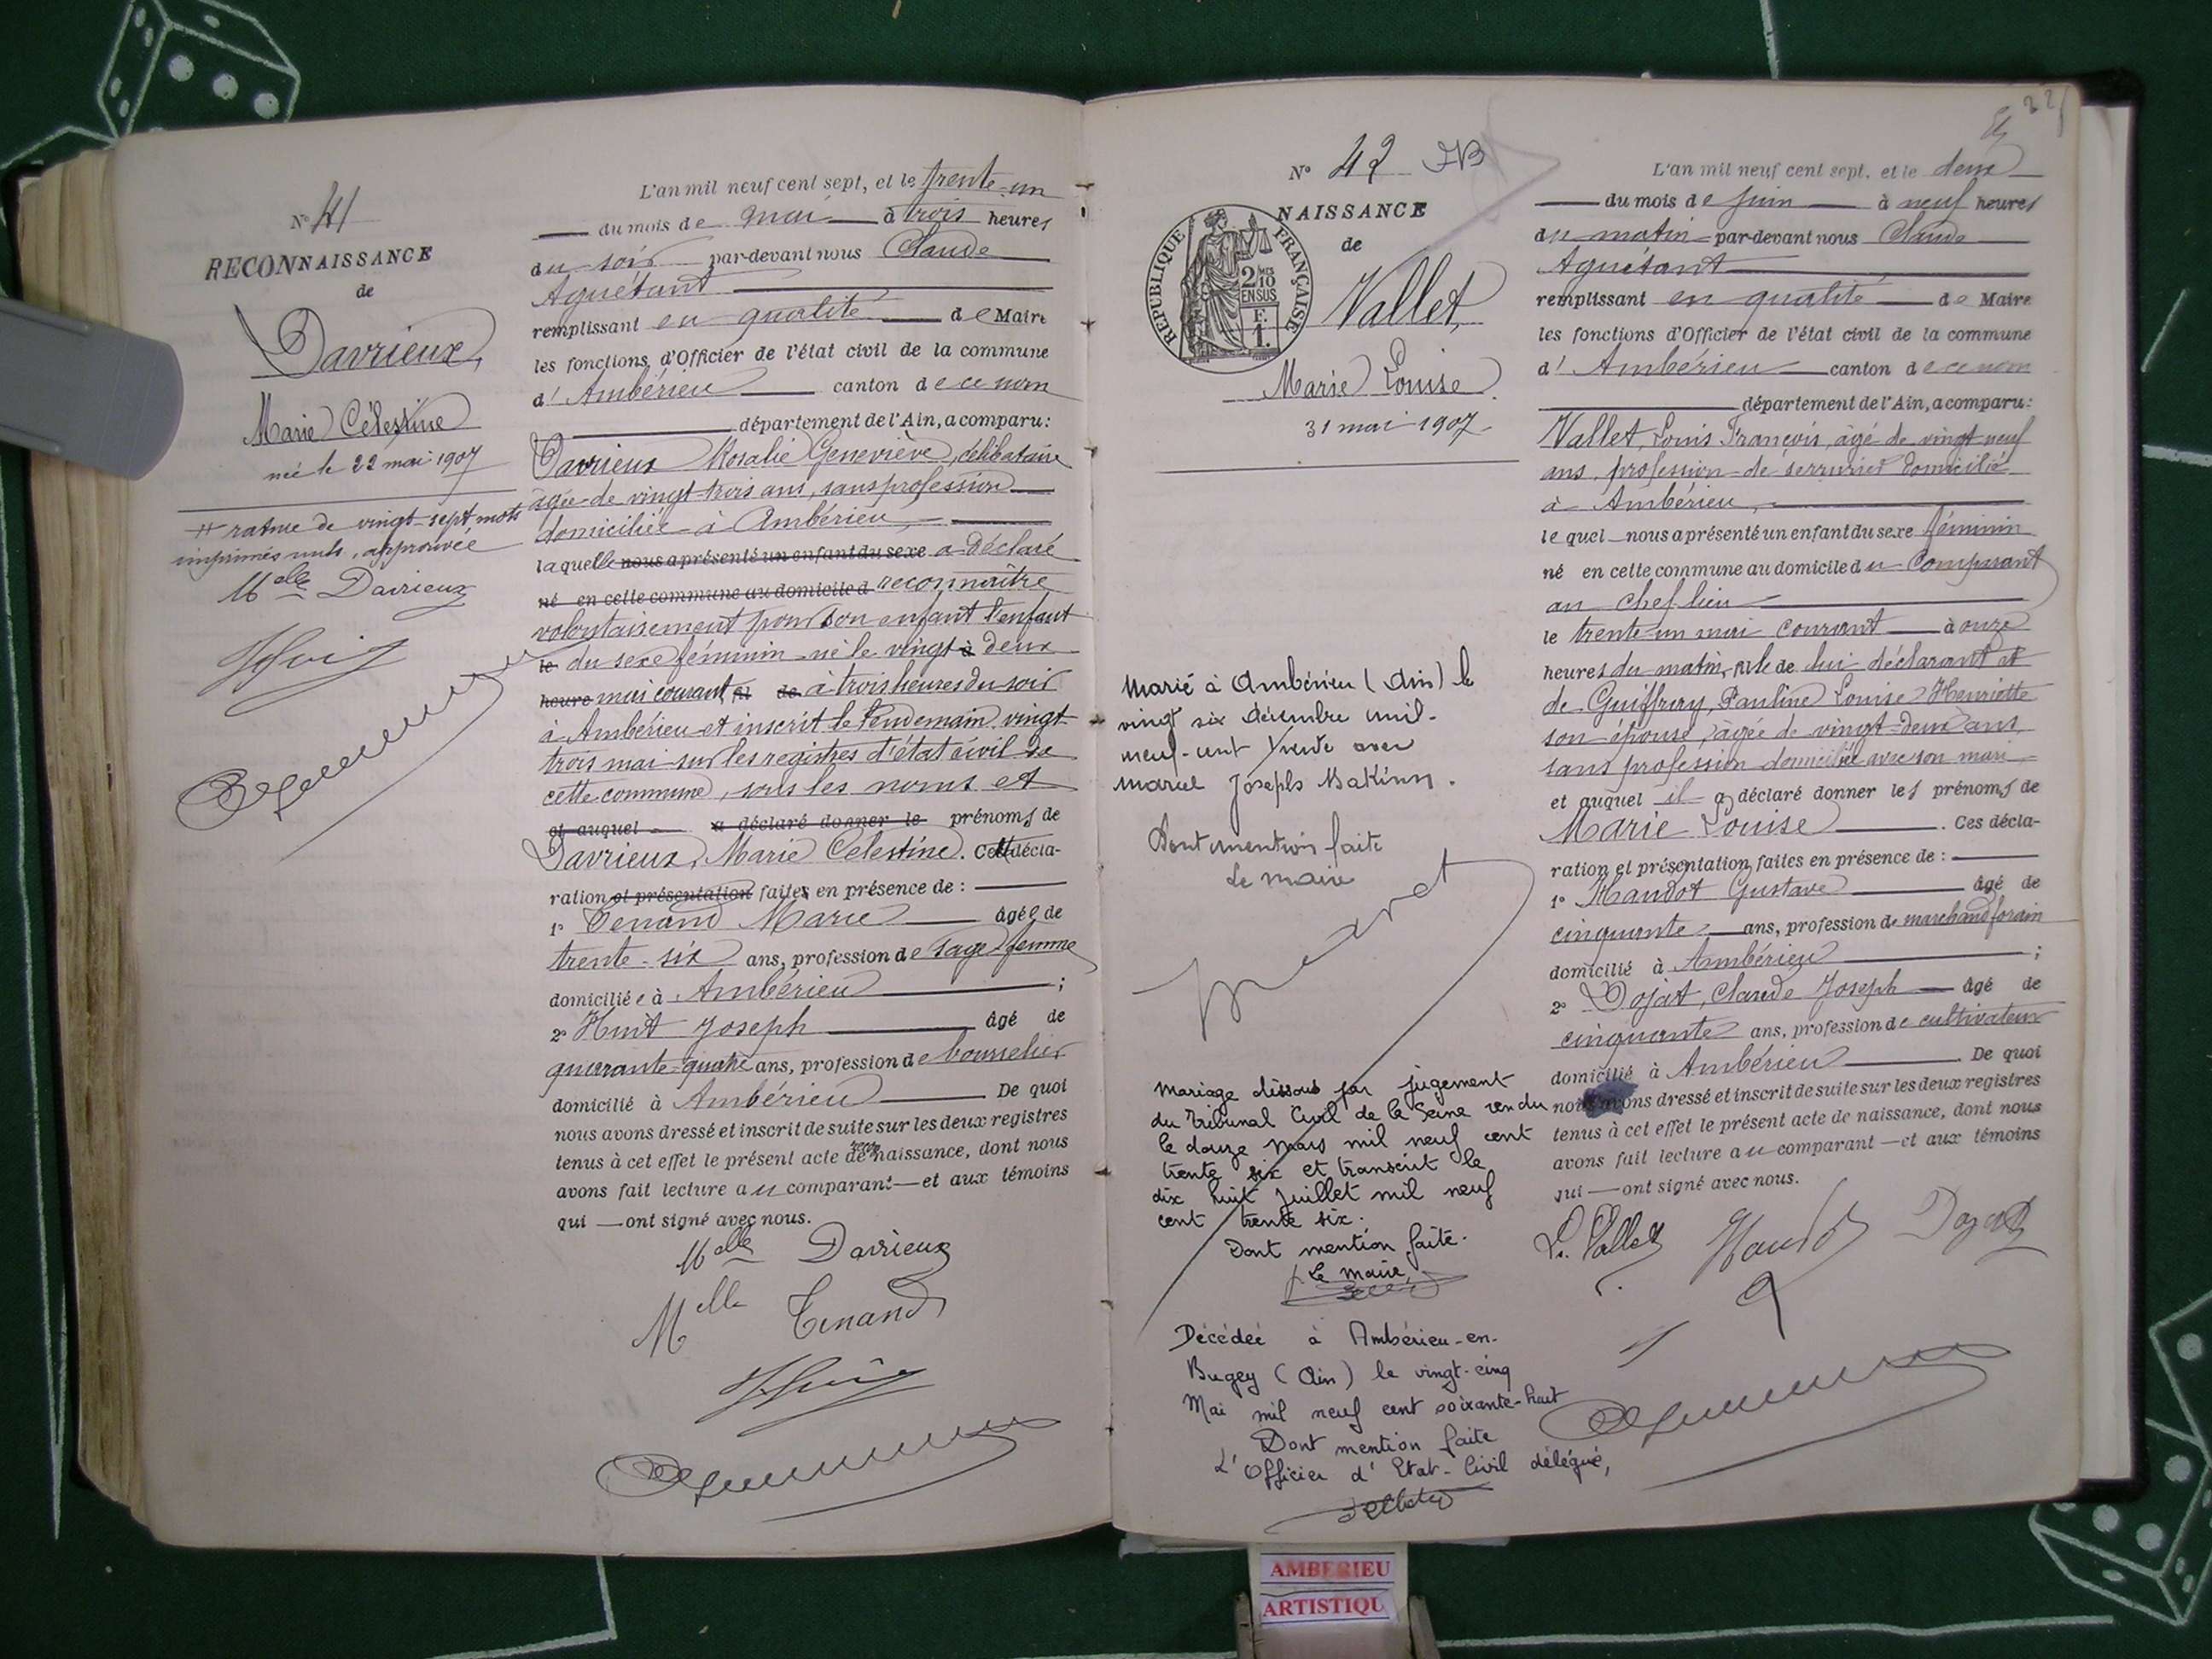 N° 41
RECONNAISSANCE
de
Davrieux,
Marie Célestine
née le 22 mai 1907
+ rature de vingt-sept mots
imprimés nuls, approuvée
Melle Davrieux
L'an mil neuf cent sept, et le trente-un
du mois de mai à trois heures
du soir par-devant nous Claude
Aguétant
remplissant en qualité de Maire
les fonctions d'Officier de l'état civil de la commune
d'Ambérieu canton de ce nom
département de l'Ain, a comparu:
Davrieux Rosalie Geneviève, célibataire
âgée de vingt-trois ans, sans profession
domiciliée à Ambérieu,
laquelle nous a présenté un enfant du sexe a déclaré
né en cette commune au domicile d reconnaître
volontairement pour son enfant l'enfant
le du sexe féminin né le vingt à deux
heure mai courant, fil de à trois heures du soir
à Ambérieu et inscrit le lendemain vingt
trois mai sur les registres d'état civil de
cette commune, sous les noms et
et auquel a déclaré donner le prénoms de
Davrieux, Marie Célestine. Cette décla-
ration et présentation faites en présence de :
1° Tenand Marie âgée de
trente-six ans, profession de sage femme
domiciliée à Ambérieu ;
2° Huit Joseph âgé de
quarante-quatre ans, profession de bourrelier
domicilié à Ambérieu De quoi
nous avons dressé et inscrit de suite sur les deux registres
tenus à cet effet le présent acte de reconnaissance, dont nous
avons fait lecture au comparant — et aux témoins
qui — ont signé avec nous.
Melle Davrieux
Melle Tenand
N° 42
NAISSANCE
de
RÉPUBLIQUE FRANÇAISE
2/10
EN SUS
F.
1.
Vallet,
Marie Louise
31 mai 1907
Marié à Ambérieu (Ain) le
vingt six décembre mil-
neuf-cent trente avec
Marcel Joseph Makinn.
Dont mention faite
Le maire
Mariage dissous par jugement
du Tribunal Civil de la Seine rendu
le douze mars mil neuf cent
trente six et transcrit le
dix huit juillet mil neuf
cent trente six.
Dont mention faite.
Le maire,
Décédée à Ambérieu-en-
Bugey (Ain) le vingt-cinq
Mai mil neuf cent soixante-huit
Dont mention faite
L'Officier d'Etat-Civil délégué,
L'an mil neuf cent sept, et le deux
du mois de juin à neuf heures
du matin par-devant nous Claude
Aguétant
remplissant en qualité de Maire
les fonctions d'Officier de l'état civil de la commune
d'Ambérieu canton de ce nom
département de l'Ain, a comparu:
Vallet, Louis François, âgé de vingt-neuf
ans, profession de serrurier domicilié
à Ambérieu,
lequel nous a présenté un enfant du sexe féminin
né en cette commune au domicile du comparant
au chef lieu
le trente-un mai courant à onze
heures du matin, fille de lui déclarant et
de Guiffray, Pauline Louise Henriette
son épouse, âgée de vingt-deux ans,
sans profession domiciliée avec son mari
et auquel il a déclaré donner les prénoms de
Marie Louise. Ces décla-
ration et présentation faites en présence de :
1° Haudot Gustave âgé de
cinquante ans, profession de marchand forain
domicilié à Ambérieu ;
2° Dojat, Claude Joseph âgé de
cinquante ans, profession de cultivateur
domicilié à Ambérieu. De quoi
nous avons dressé et inscrit de suite sur les deux registres
tenus à cet effet le présent acte de naissance, dont nous
avons fait lecture au comparant — et aux témoins
qui — ont signé avec nous.
L. Vallet
Haudot
Dojat
AMBERIEU
ARTISTIQU